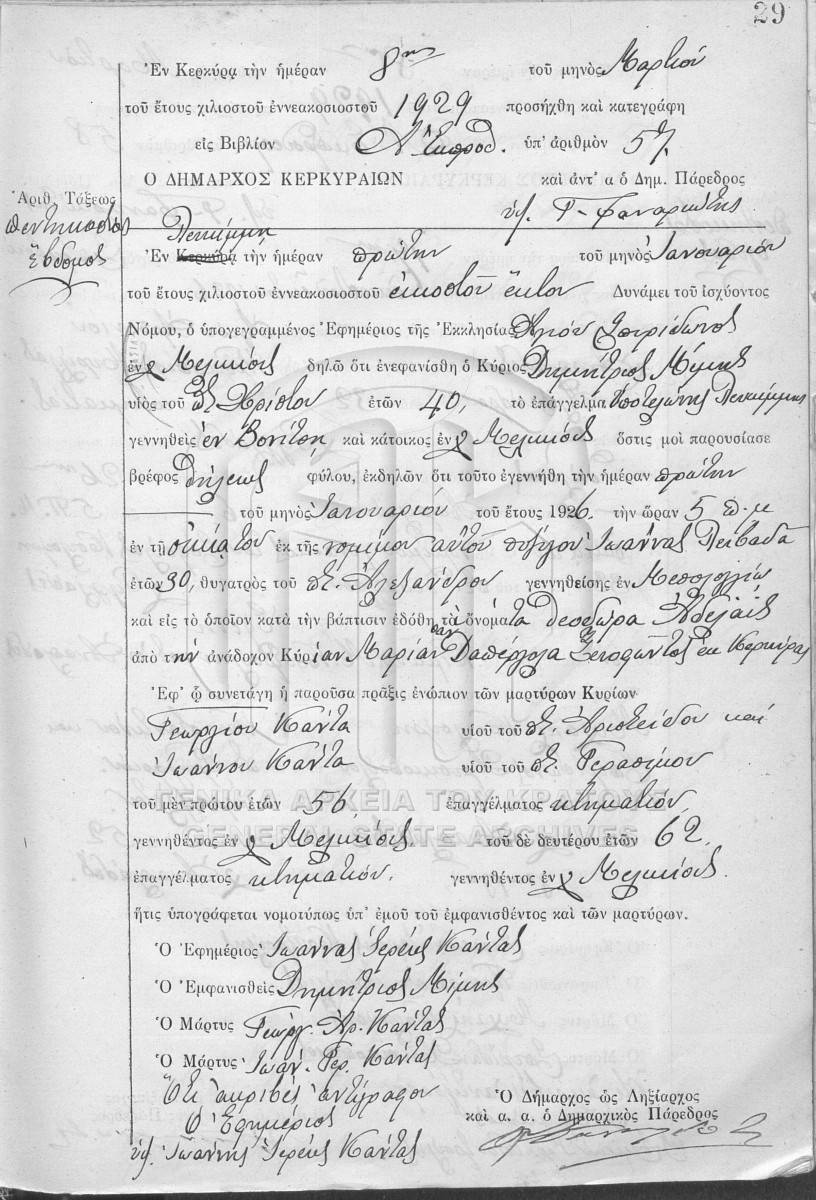 29
Ἐν Κερκύρᾳ τὴν ἡμέραν 8ην τοῦ μηνὸς Μαρτίου
τοῦ ἔτους χιλιοστοῦ ἐννεακοσιοστοῦ 1929 προσήχθη καὶ κατεγράφη
εἰς Βιβλίον Α Ἐκπροθ. ὑπ' ἀριθμὸν 57.
Ο ΔΗΜΑΡΧΟΣ ΚΕΡΚΥΡΑΙΩΝ καὶ ἀντ' α ὁ Δημ. Πάρεδρος
Ἀριθ. Τάξεως
πεντηκοστὸς
ἕβδομος
ὑπ. Γ. Φαναριώτης
Λευκίμμῃ
Ἐν Κερκύρᾳ τὴν ἡμέραν πρώτην τοῦ μηνὸς Ἰανουαρίου
τοῦ ἔτους χιλιοστοῦ ἐννεακοσιοστοῦ εἰκοστοῦ ἕκτου Δυνάμει τοῦ ἰσχύοντος
Νόμου, ὁ ὑπογεγραμμένος Ἐφημέριος τῆς Ἐκκλησίας Ἁγίου Σπυρίδωνος
ἐν Μελικίοις δηλῶ ὅτι ἐνεφανίσθη ὁ Κύριος Δημήτριος Μίμης
υἱὸς τοῦ Χρίστου ἐτῶν 40, τὸ ἐπάγγελμα Ὑποτελώνης Λευκίμμης
γεννηθεὶς ἐν Βονίτσῃ καὶ κάτοικος ἐν Μελικίοις ὅστις μοὶ παρουσίασε
βρέφος θήλεως φύλου, ἐκδηλῶν ὅτι τοῦτο ἐγεννήθη τὴν ἡμέραν πρώτην
τοῦ μηνὸς Ἰανουαρίου τοῦ ἔτους 1926. τὴν ὥραν 5 π.μ
ἐν τῇ οἰκίᾳ του ἐκ τῆς νομίμου αὐτοῦ συζύγου Ἰωάννας Λειβαδᾶ
ἐτῶν 30, θυγατρὸς τοῦ Ἀλεξάνδρου γεννηθείσης ἐν Μεσολογγίῳ
καὶ εἰς τὸ ὁποῖον κατὰ τὴν βάπτισιν ἐδόθη τὰ ὀνόματα Θεοδώρα Ἀδελαΐς
ἀπὸ τὴν ἀνάδοχον Κυρίαν Μαρίαν Ξενοφῶντος ἐκ Κερκύρας
Ἐφ' ᾧ συνετάγη ἡ παροῦσα πρᾶξις ἐνώπιον τῶν μαρτύρων Κυρίων
Γεωργίου Κάντα υἱοῦ τοῦ Ἀριστείδου καὶ
Ἰωάννου Κάντα υἱοῦ τοῦ Γερασίμου
τοῦ μὲν πρώτου ἐτῶν 56, ἐπαγγέλματος κτηματίου,
ΓΕΝΙΚΑ ΑΡΧΕΙΑ ΤΟΥ ΚΡΑΤΟΥΣ
GENERAL STATE ARCHIVES
γεννηθέντος ἐν Μελικίοις τοῦ δὲ δευτέρου ἐτῶν 62,
ἐπαγγέλματος κτηματίου, γεννηθέντος ἐν Μελικίοις.
ἥτις ὑπογράφεται νομοτύπως ὑπ' ἐμοῦ τοῦ ἐμφανισθέντος καὶ τῶν μαρτύρων.
Ὁ Ἐφημέριος Ἰωάννης Ἱερεὺς Κάντας
Ὁ Ἐμφανισθεὶς Δημήτριος Μίμης
Ὁ Μάρτυς Γεώργ. Ἀρ. Κάντας
Ὁ Μάρτυς Ἰωάν. Γερ. Κάντας
Ὅτι ἀκριβὲς ἀντίγραφον
Ὁ Ἐφημέριος
ὑπ. Ἰωάννης Ἱερεὺς Κάντας
Ὁ Δήμαρχος ὡς Ληξίαρχος
καὶ α. α. ὁ Δημαρχικὸς Πάρεδρος